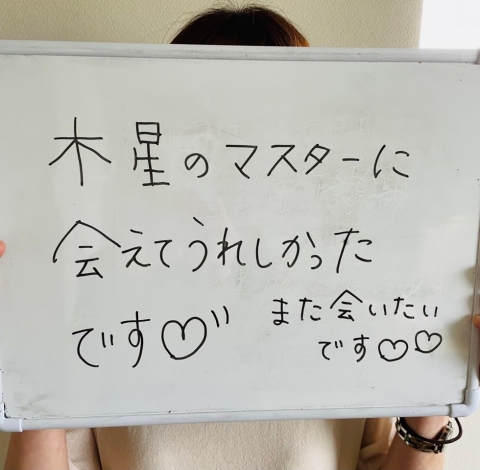 木星のマスターに
会えてうれしかった
です♡
また会いたい
です♡♡